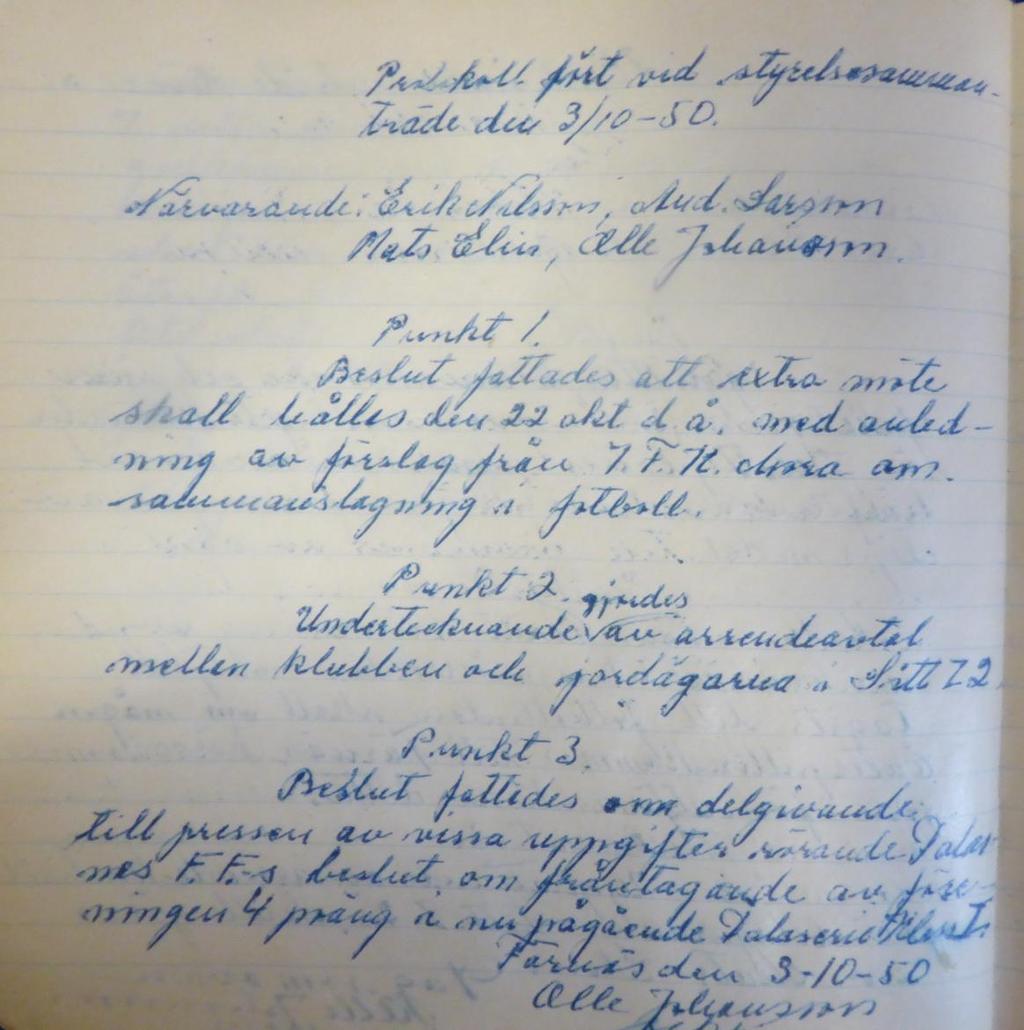 Protokoll fört vid styrelsesamman-
träde den 3/10-50.
Närvarande: Erik Nilsson, And. Larsson
Mats Elin, Olle Johansson.
Punkt 1.
Beslut fattades att extra möte
skall hålles den 22 okt d å. med anled-
ning av förslag från I.F.K. Mora om.
sammanslagning i fotboll.
Punkt 2. gjordes
Undertecknande av arrendeavtal
mellan klubben och jordägarna i
Punkt 3.
Beslut fattades om delgivande
till pressen av vissa uppgifter rörande Dalar-
nes F.F.-s beslut om fråntagande av före-
ningen 4 poäng i nu pågående Dalaserie
Färnäs den 3-10-50
Olle Johansson